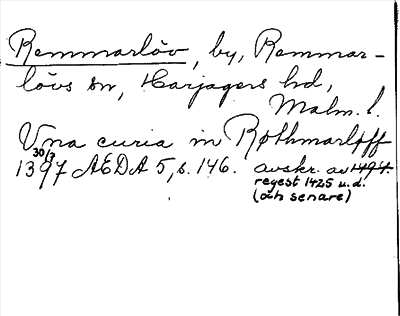 Remmarlöv, by, Remmar-
lövs sn, Harjagers hd,
Malm. l.
Vna curia in Rothmarløff
30/3
1397 AEDA 5, s. 146. avskr. av 1494.
regest 1425 u.d.
(och senare)